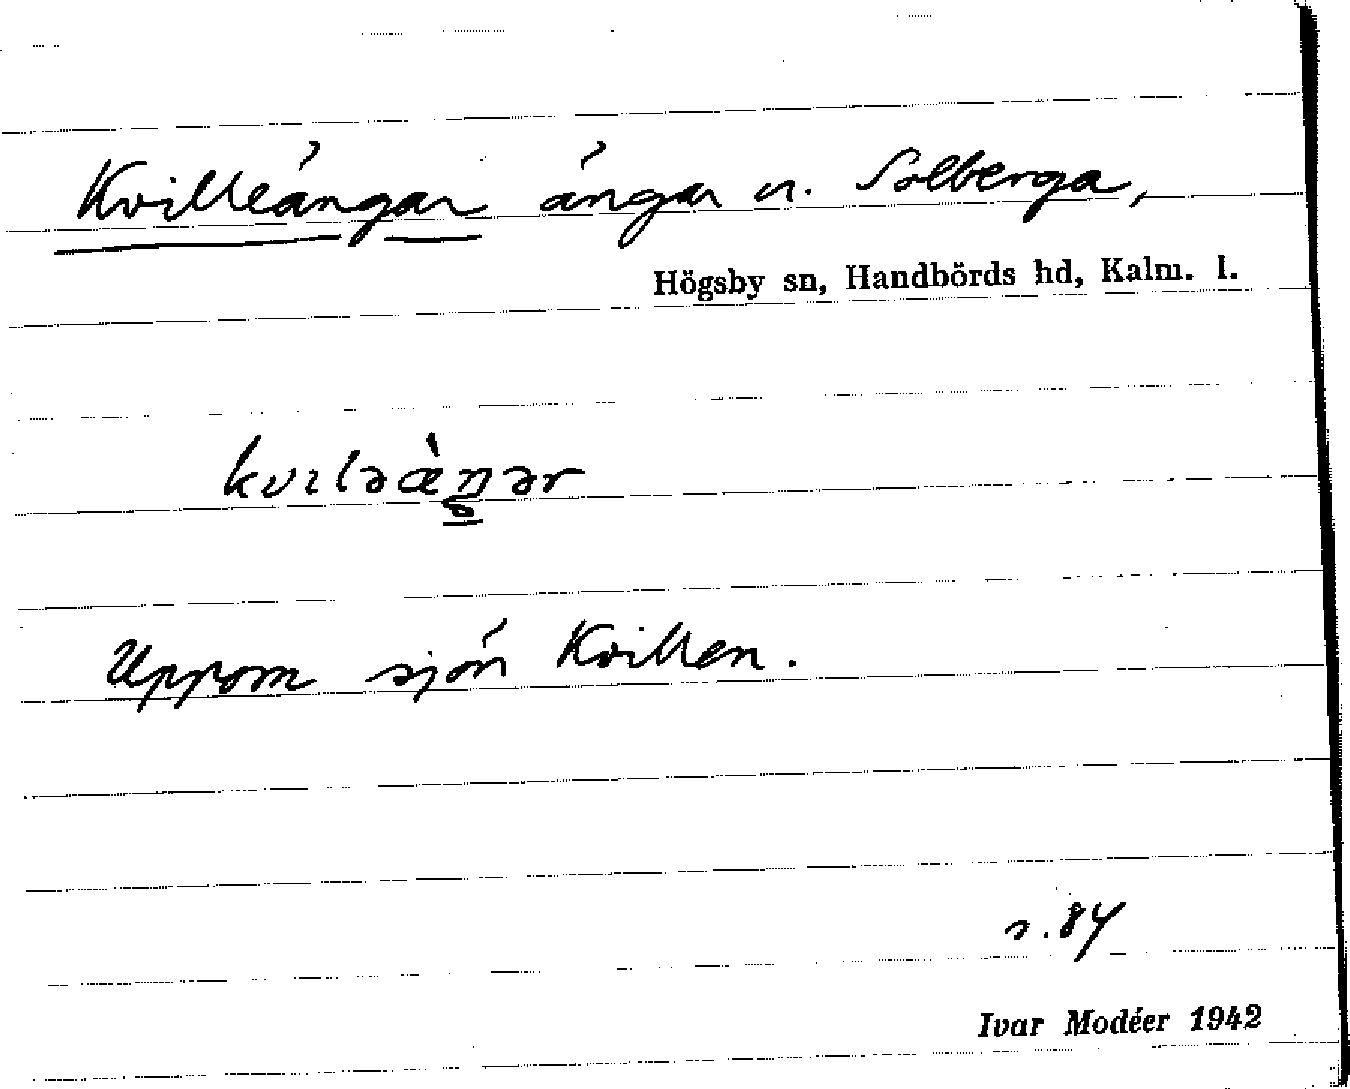 Kvilleängar ängar u. Solberga,
Högsby sn, Handbörds hd, Kalm. l.
Uppom sjön Kvillen.
s. 84
Ivar Modéer 1942